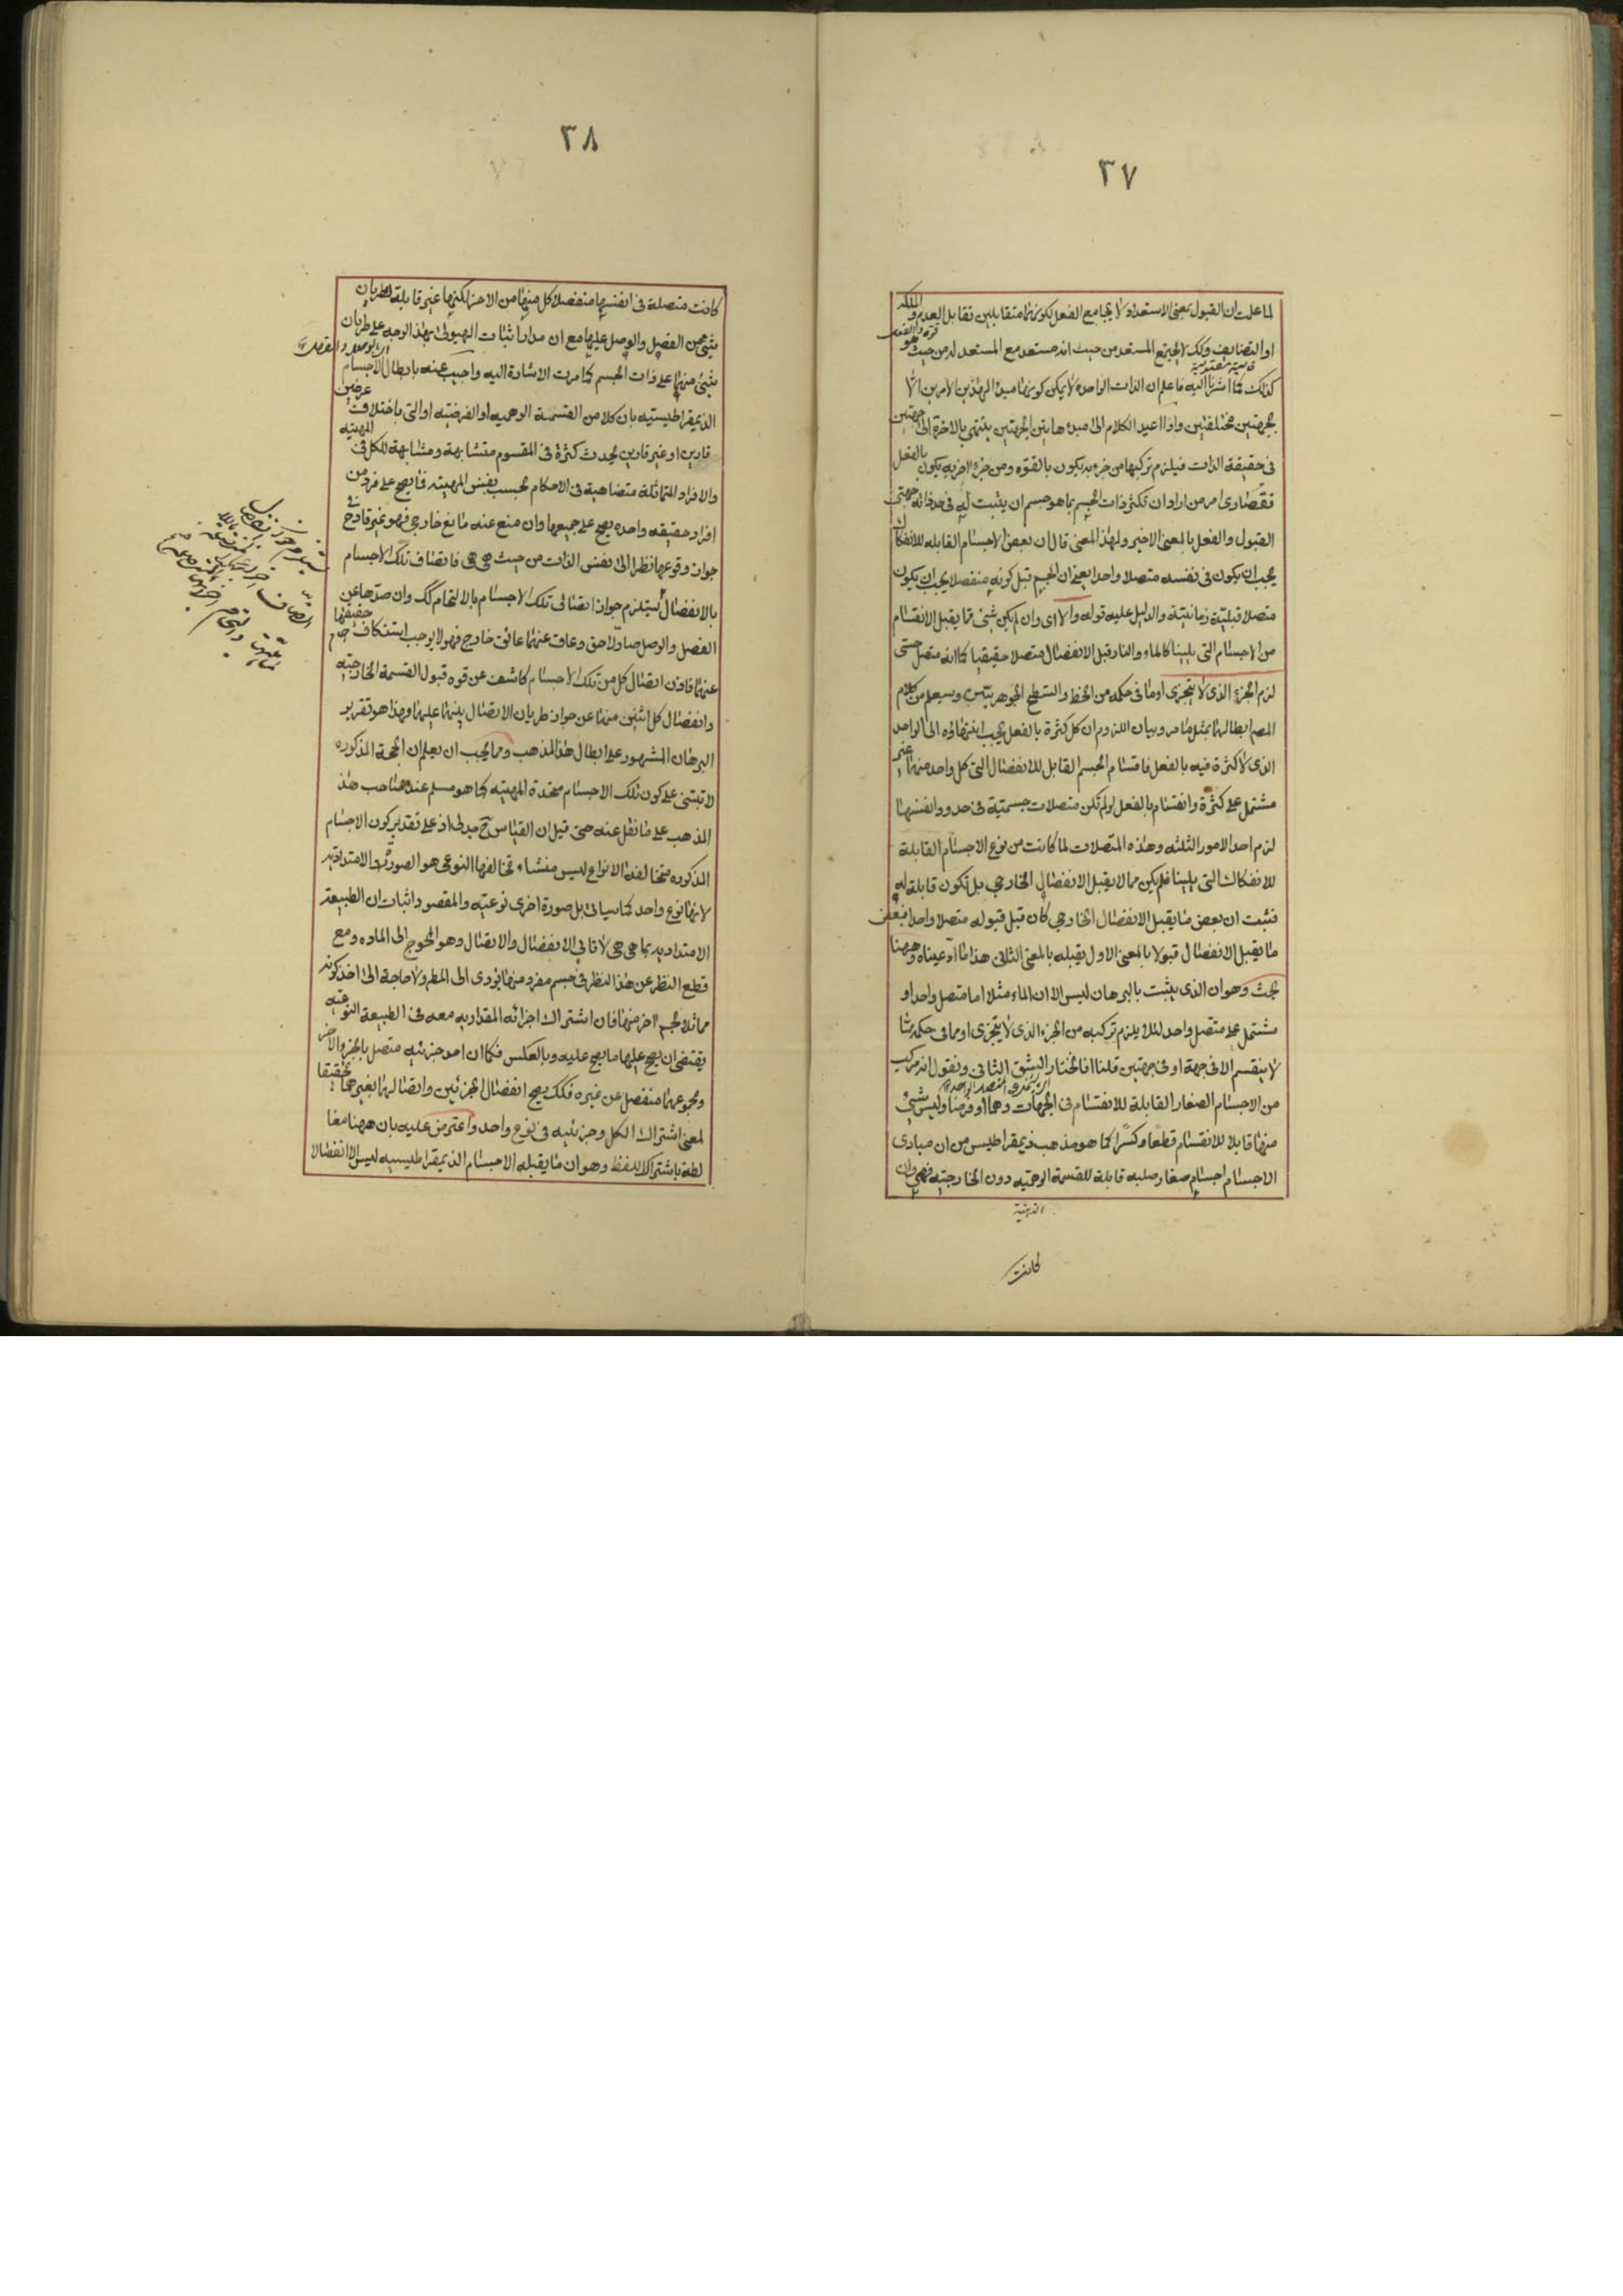 ٣٧
لما علمت ان القبول بمعنى الاستعداد لا يجامع الفعل لكونهما متقابلين تقابل العدم والملكه
او التضايف وكك لا يجتمع المستعد من حيث انه مستعد مع المستعد له من حيث هو
كذلك كما اشرنا اليه فاعلم ان الذات الواحده لا يمكن كونها مبدء لهذين الامرين الا
بجهتين مختلفتين واذا اعيد الكلام الى مبدء هاتين الجهتين ينتهى بالاخرة الى جهتين
فى حقيقة الذات فيلزم تركبها من جزء به يكون بالقوه ومن جزء اخر به يكون بالفعل
فقصارى امر من اراد ان تكثر ذات الجسم بما هو جسم ان يثبت له فى حد ذاته جهتى
القبول والفعل بالمعنى الاخير ولهذا المعنى قال ان بعض الاجسام القابله للانفكاك
يجب ان يكون فى نفسه متصلا واحدا يعنى ان الجسم قبل كونه منفصلا يجب ان يكون
متصلا قبلية زمانية والدليل عليه قوله والا اى وان لم يكن شئ مما يقبل الانقسام
من الاجسام التى يلينا كالماء والنار قبل الانفصال متصلا حقيقيا كما انه متصل حسى
لزم الجزء الذى لا يتجزى او ما فى حكمه من الخط والسطح الجوهريين وسيعلم من كلام
المصم ابطالهما بمثل ما مر وبيان اللزوم ان كل كثرة بالفعل يجب انتهاؤه الى الواحد
الذى لا كثرة فيه بالفعل فاقسام الجسم القابل للانفصال التى كل واحد منها غير
مشتمل على كثرة وانقسام بالفعل لو لم تكن متصلات جسمية فى حدود انفسها
لزم احد الامور الثلثه وهذه المتصلات لما كانت من نوع الاجسام القابلة
للانفكاك التى يلينا فلم يكن مما لا يقبل الانفصال الخارجى بل تكون قابلة له
فثبت ان بعض ما يقبل الانفصال الخارجى كان قبل قبوله متصلا واحدا فبعض
ما يقبل الانفصال قبولا بالمعنى الاول يقبله بالمعنى الثانى هذا ما ادعيناه وههنا
بحث وهو ان الذى يثبت بالبرهان ليس الا ان الماء مثلا اما متصل واحد او
مشتمل على متصل واحد لئلا يلزم تركبه من الجزء الذى لا يتجزى او مما فى حكمه مما
لا ينقسم الا فى جهة او فى جهتين قلنا انا نختار الشق الثانى ونقول انه مركب
من الاجسام الصغار القابلة للانقسام فى الجهات وهما او فرضا وليس شئ
منها قابلا للانقسام قطعا وكسرا كما هو مذهب ذيمقراطيس من ان مبادى
الاجسام اجسام صغار صلبه قابلة للقسمة الوهميه دون الخارجيه فهى وان
كانت
٣٨
كانت متصلة فى انفسها منفصلا كل منها من الاخر لكنها غير قابلة لطريان
شئ من الفصل والوصل عليها مع ان مدار اثبات الهيولى بهذا الوجه على طريان
شئ منهما على ذات الجسم كما مرت الاشارة اليه واجيب عنه بابطال الاجسام
الذيمقراطيسيه بان كلا من القسمة الوهميه او الفرضيه او التى باختلاف عرضين
قارين او غير قارين يحدث كثرة فى المقسوم متشابهة ومشابهة للكل فى المهيته
والافراد المتماثلة متضاهية فى الاحكام بحسب نفس المهيته فما يصح على فرد من
افراد حقيقه واحده يصح على جميعها وان منع عنه مانع خارجى فهو غير قادح فى
جواز وقوعها نظرا الى نفس الذات من حيث هى هى فاتصاف تلك الاجسام
بالانفصال يستلزم جواز اتصاف تلك الاجسام بالالتحام كك وان صدها عن
الفصل والوصل صاد لاحق وعاق عنهما عائق خارج فهو لا يوجب استنكاف حقيقتها
عنهما فاذن اتصال كل من تلك الاجسام كاشف عن قوه قبول القسمة الخارجيه
وانفصال كل اثنين منها عن جواز طريان الاتصال بينهما عليهما وهذا هو تقرير
البرهان المشهور على ابطال هذا المذهب ومما يجب ان يعلم ان الحجة المذكوره
لا تبتنى على كون تلك الاجسام متحدة المهيته كما هو مسلم عند صاحب هذا
المذهب على ما نقل عنه حتى قيل ان القياس ح جدلى اذ على تقدير كون الاجسام
المذكوره متخالفة الانواع ليس منشاء تخالفها النوعى هو الصورة الامتداديه
لانها نوع واحد كما سياتى بل صورة اخرى نوعيه والمقصود اثبات ان الطبيعة
الامتداديه بما هى هى لا تابى الانفصال والاتصال وهو المحوج الى الماده ومع
قطع النظر عن هذا النظر فى جسم مفرد منها يؤدى الى المطم ولا حاجة الى اخذ كونه
مماثلا لجسم اخر منها فان اشتراك اجزائه المقداريه معه فى الطبيعة النوعيه
يقتضى ان يصح عليها ما يصح عليه وبالعكس فكما ان احد جزئيه متصل بالجزء الاخر
ومجموعهما منفصل عن غيره فكك يصح انفصال الجزئين واتصالهما بغيرهما تحقيقا
لمعنى اشتراك الكل وجزئيه فى نوع واحد واعترض عليه بان ههنا مغا
لطة باشتراك اللفظ وهو ان ما يقبله الاجسام الذيمقراطيسيه ليس الا انفصالا